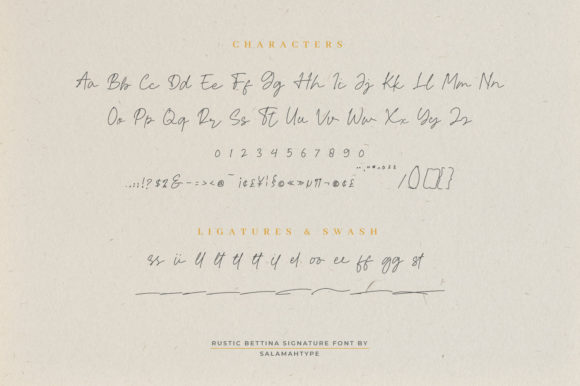 CHARACTERS
Aa Bb Cc Dd Ee Ff Gg Hh Ii Jj Kk Ll Mm Nn
Oo Pp Qq Rr Ss Tt Uu Vv Ww Xx Yy Zz
0 1 2 3 4 5 6 7 8 9 0
.,:;!?$&-=><@
LIGATURES & SWASH
ss ii ll tt tl it il el oo ee ff gg st
RUSTIC BETTINA SIGNATURE FONT BY
SALAMAHTYPE